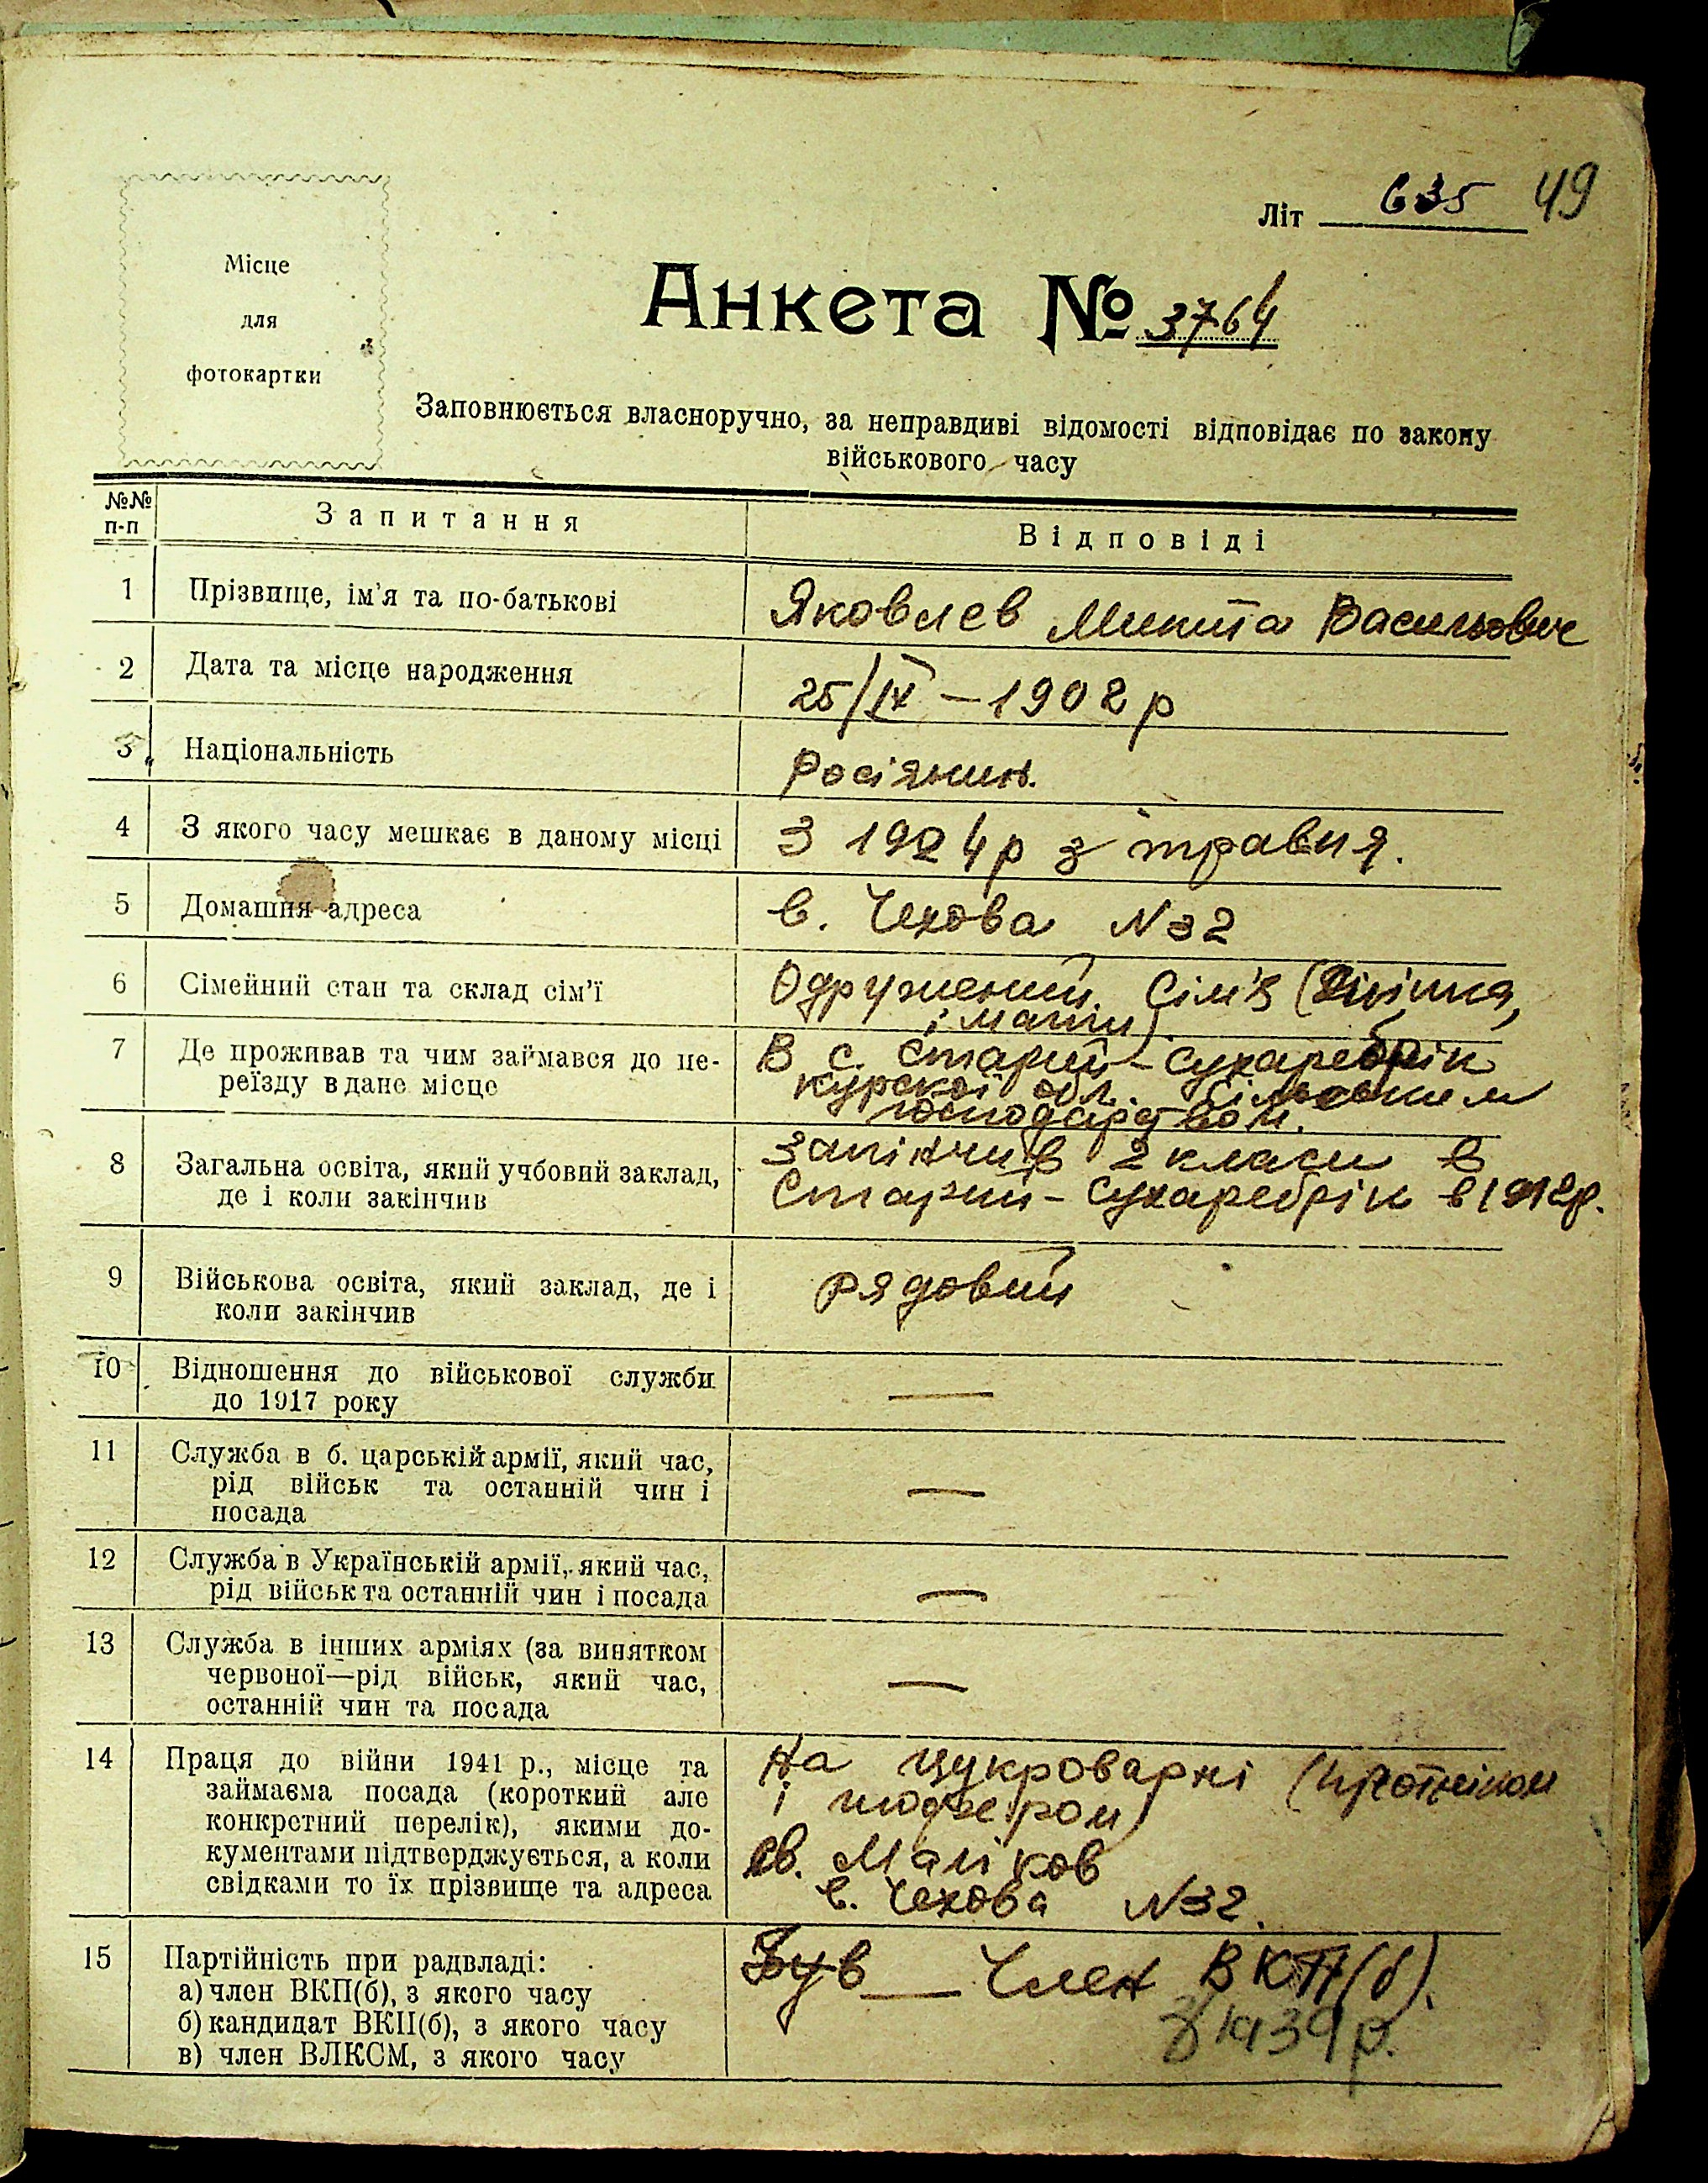 Літ 635 49
Місце
для
фотокартки
Анкета № 3764
Заповнюється власноручно, за неправдиві відомості відповідає по закону
військового часу
№№ п-п Запитання Відповіді
1 Прізвище, ім'я та по-батькові Яковлев Микита Васильович
2 Дата та місце народження 25/IX – 1902 р
3 Національність Росіянин.
4 З якого часу мешкає в даному місці З 1924 р з травня.
5 Домашня адреса в. Чехова N 32
6 Сімейний стан та склад сім'ї Одружений. Сім'я (
і мати)
7 Де проживав та чим займався до пе- В с. Старий-Сухаребрік
реїзду в дане місце курскої обл. Сільським
господарством.
8 Загальна освіта, який учбовий заклад, Запінчив 2 класи в
де і коли закінчив Старий-Сухаребрік в 1912р.
9 Військова освіта, який заклад, де і рядовий
коли закінчив
10 Відношення до військової служби —
до 1917 року
11 Служба в б. царській армії, який час, —
рід військ та останній чин і
посада
12 Служба в Українській армії, який час, —
рід військ та останній чин і посада
13 Служба в інших арміях (за винятком
червоної—рід військ, який час, —
останній чин та посада
14 Праця до війни 1941 р., місце та На цукроварні (
займаєма посада (короткий але і
конкретний перелік), якими до-
кументами підтверджується, а коли св. Маліков
свідками то їх прізвище та адреса в. Чехова N 32.
15 Партійність при радвладі: Був — Член ВКП(б).
а) член ВКП(б), з якого часу З 1939 р.
б) кандидат ВКП(б), з якого часу
в) член ВЛКСМ, з якого часу